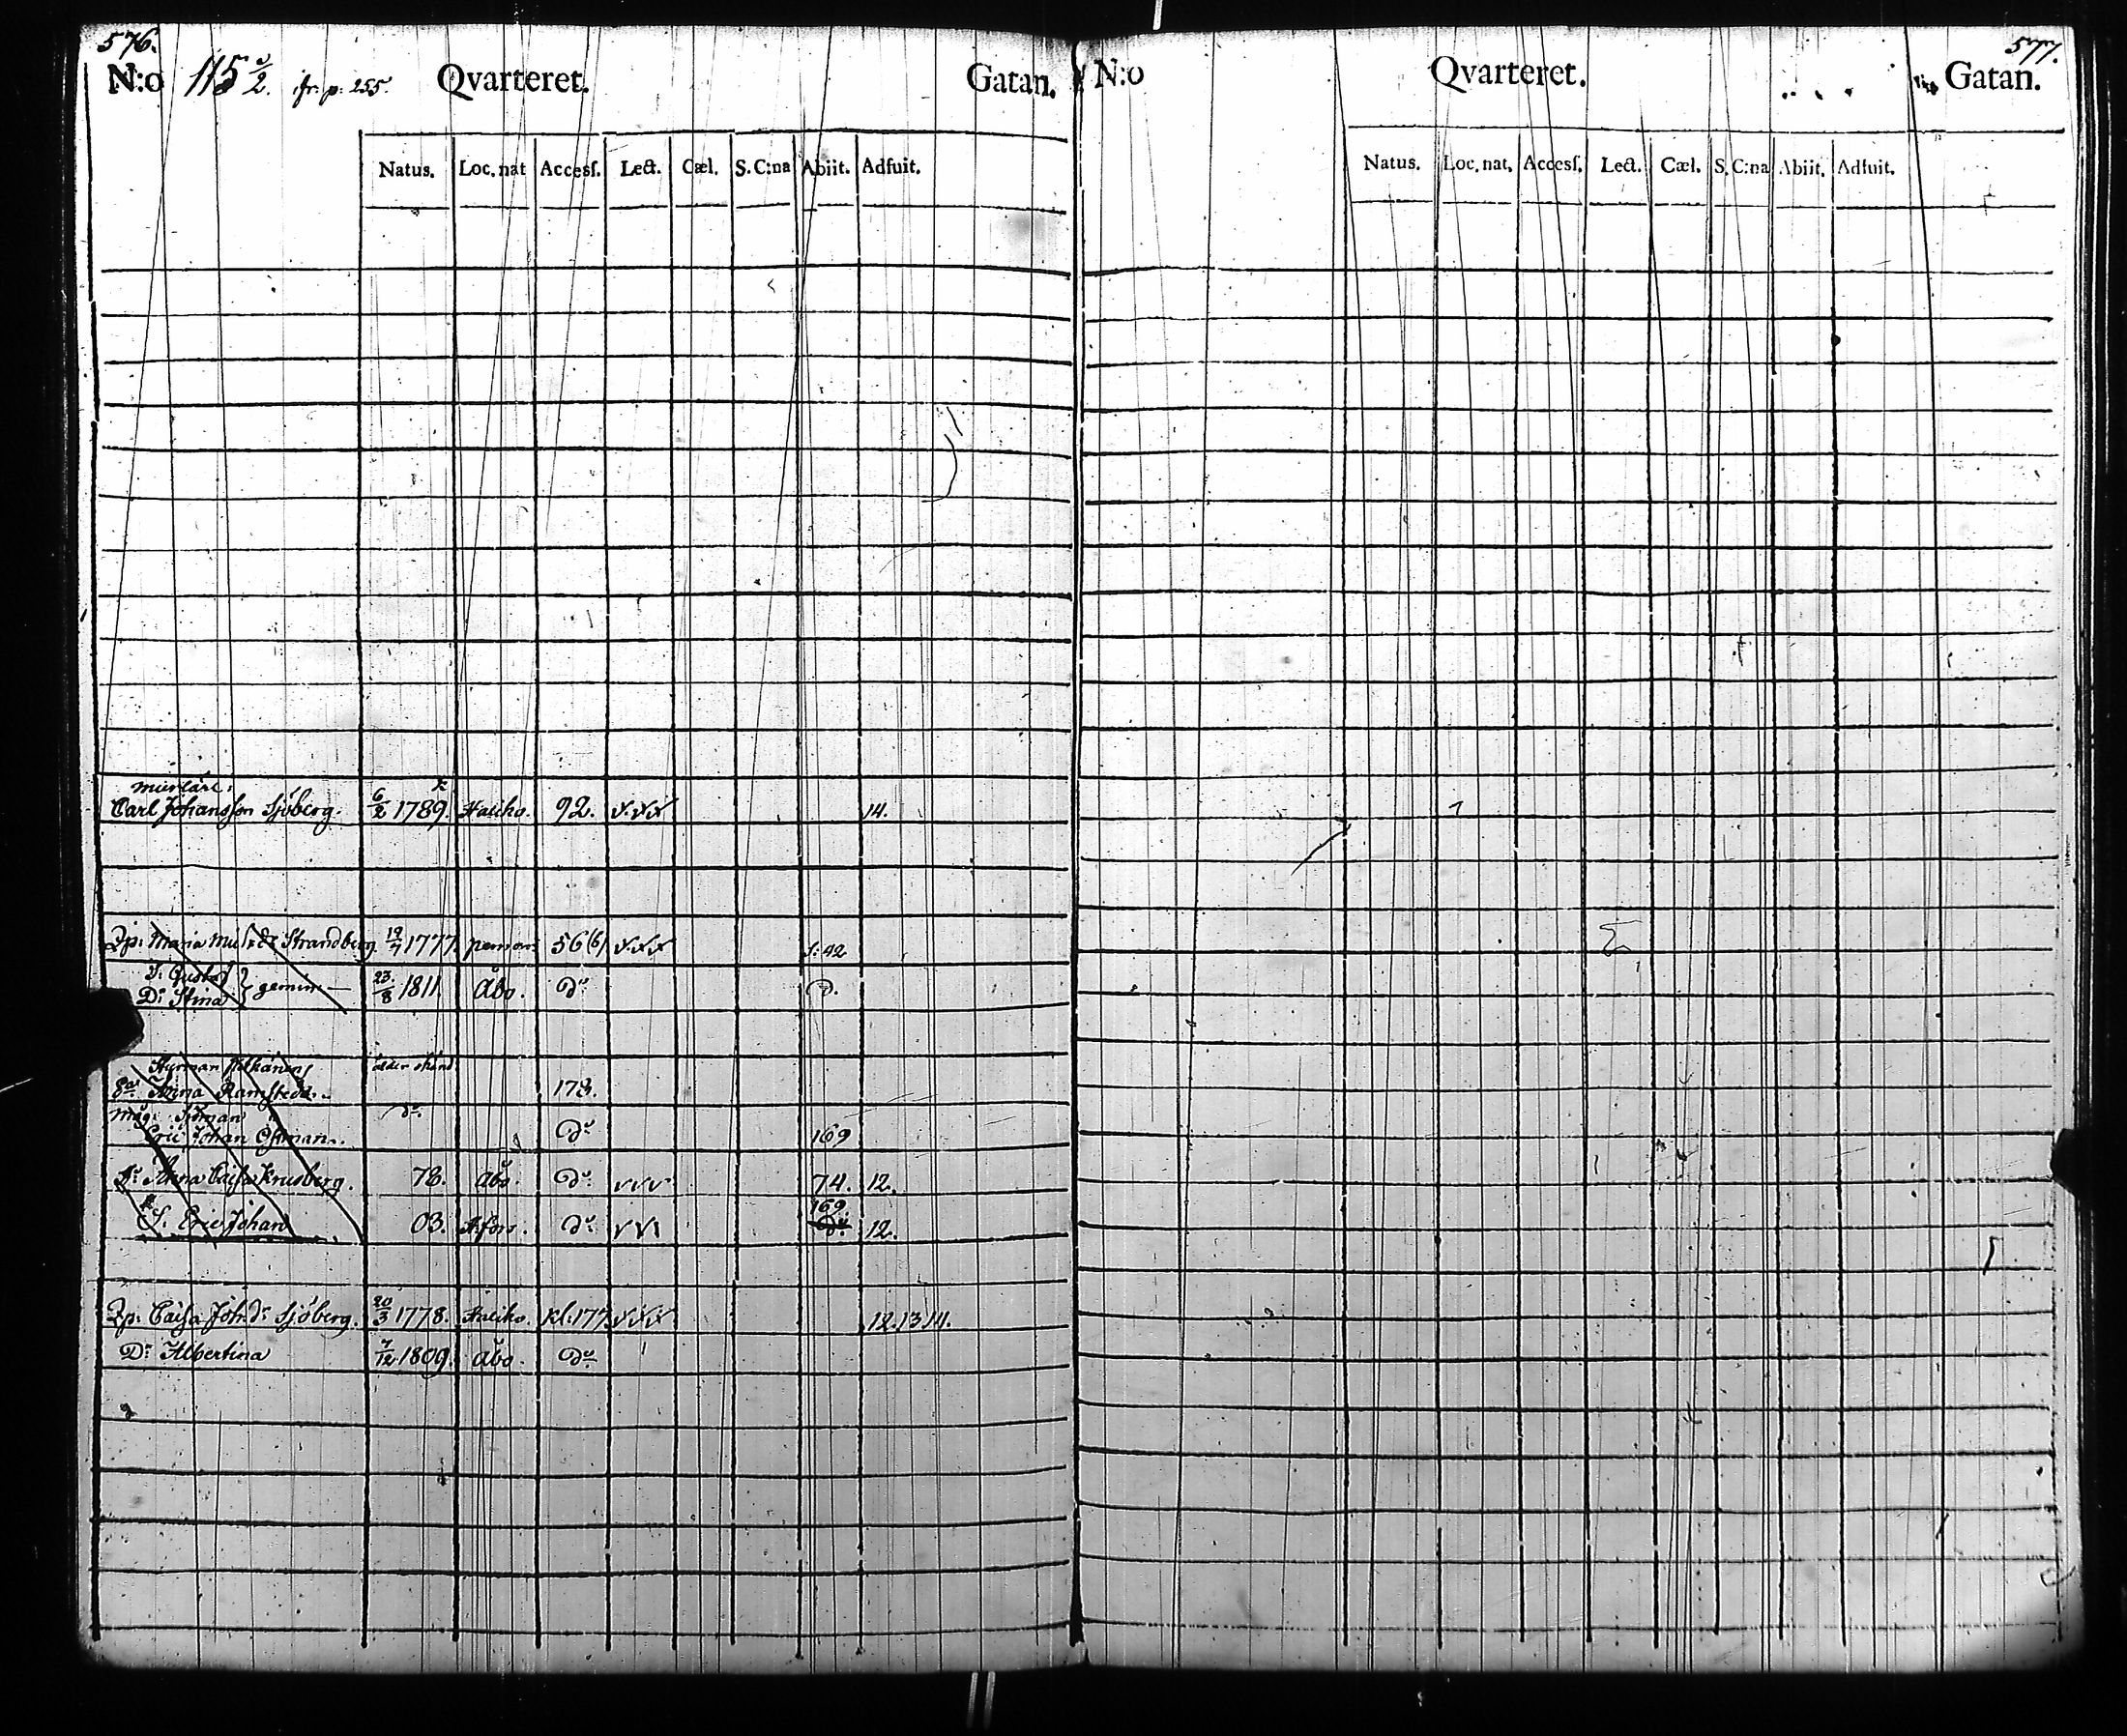 576.
N:o 115 2. fr. p. 255. Qvarteret. Gatan.
Natus. Loc. nat Accesſ. Lect. Cæl. S. C:na Abiit. Adfuit.
Carl Johansson Sjöberg. 6/2 1789. Haliko. 92. 14.
Maria Strandberg 19/7 1777. 56(6) 42
S. Gustaf
Dr Stina } gemin 23/8 1811. Åbo. do D.
Styrman
Anna Ramstedt. 178.
do
Eric Johan Öhman. do 169
Anna Caisa Krusberg. 78. Åbo. do vvv 74. 12.
S. Eric Johan 03. H:fors. do 169 do. 12.
Qp: Caisa Joh:dr Sjöberg. 20/3 1778. Haliko. kl:177. 12.13.14.
Dr Albertina 7/12 1809. Åbo. do
577.
N:o Qvarteret. Gatan.
Natus. Loc. nat. Accesſ. Lect. Cæl. S. C:na Abiit. Adfuit.